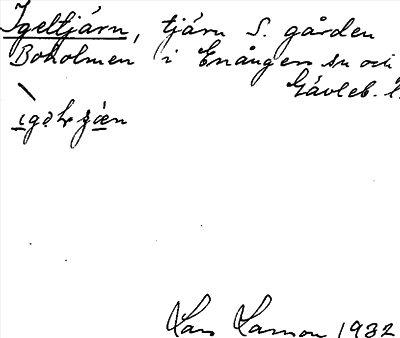 Igeltjärn, tjärn S. gården
Boholmen i Enångers sn och
Gävleb. l.
Lars Larsson 1932